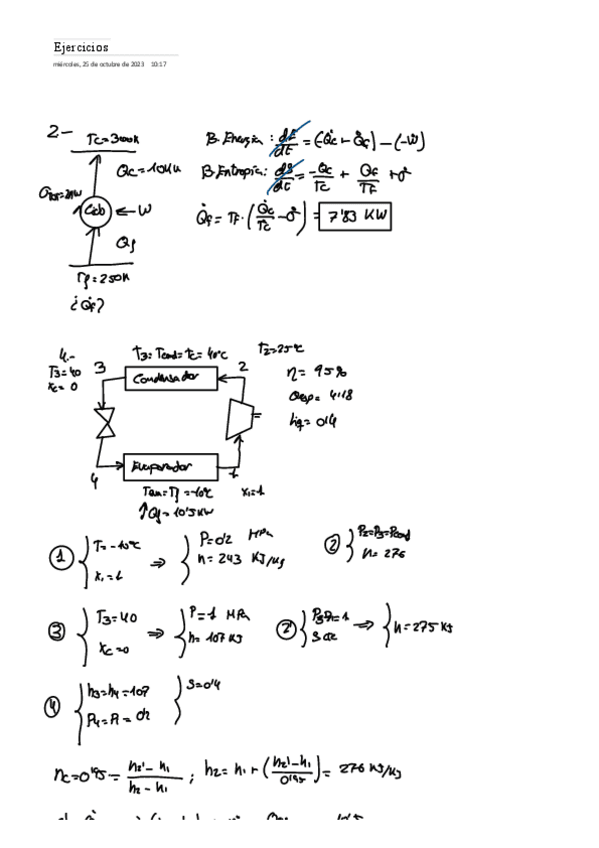 Ejercicios
miércoles, 25 de octubre de 2023 10:17
2.-
Tc=300K
Qc=10KW
Ciclo ← W
Qf
Tf=250K
¿Q̇f?
B. Energía: dE/dt = (-Q̇c + Q̇f) - (-Ẇ)
B. Entropía: dS/dt = -Q̇c/Tc + Q̇f/TF + σ̇
Q̇f = TF · (Q̇c/Tc - σ̇) = 7'83 KW
4.-
T3=40
xc=0
T3=Tcond=Tc=40ºC
T2=25ºC
3
Condensador
2
η = 95%
4
Evaporador
1
Tev=Tf=-10ºC
x1=1
Qf=10'5KW
① T=-10ºC
x1=1
⇒ P=0'2 MPa
h=243 KJ/Kg
② P2=P3=Pcond
h=276
③ T3=40
xc=0
⇒ P=1 MPa
h=107 KJ
②' ⇒ h=275 KJ
④ h3=h4=107
P4=P1=0'2
S=0'4
ηc=0'95= (h2'-h1)/(h2-h1) ; h2=h1+((h2'-h1)/0'95)= 276 KJ/Kg